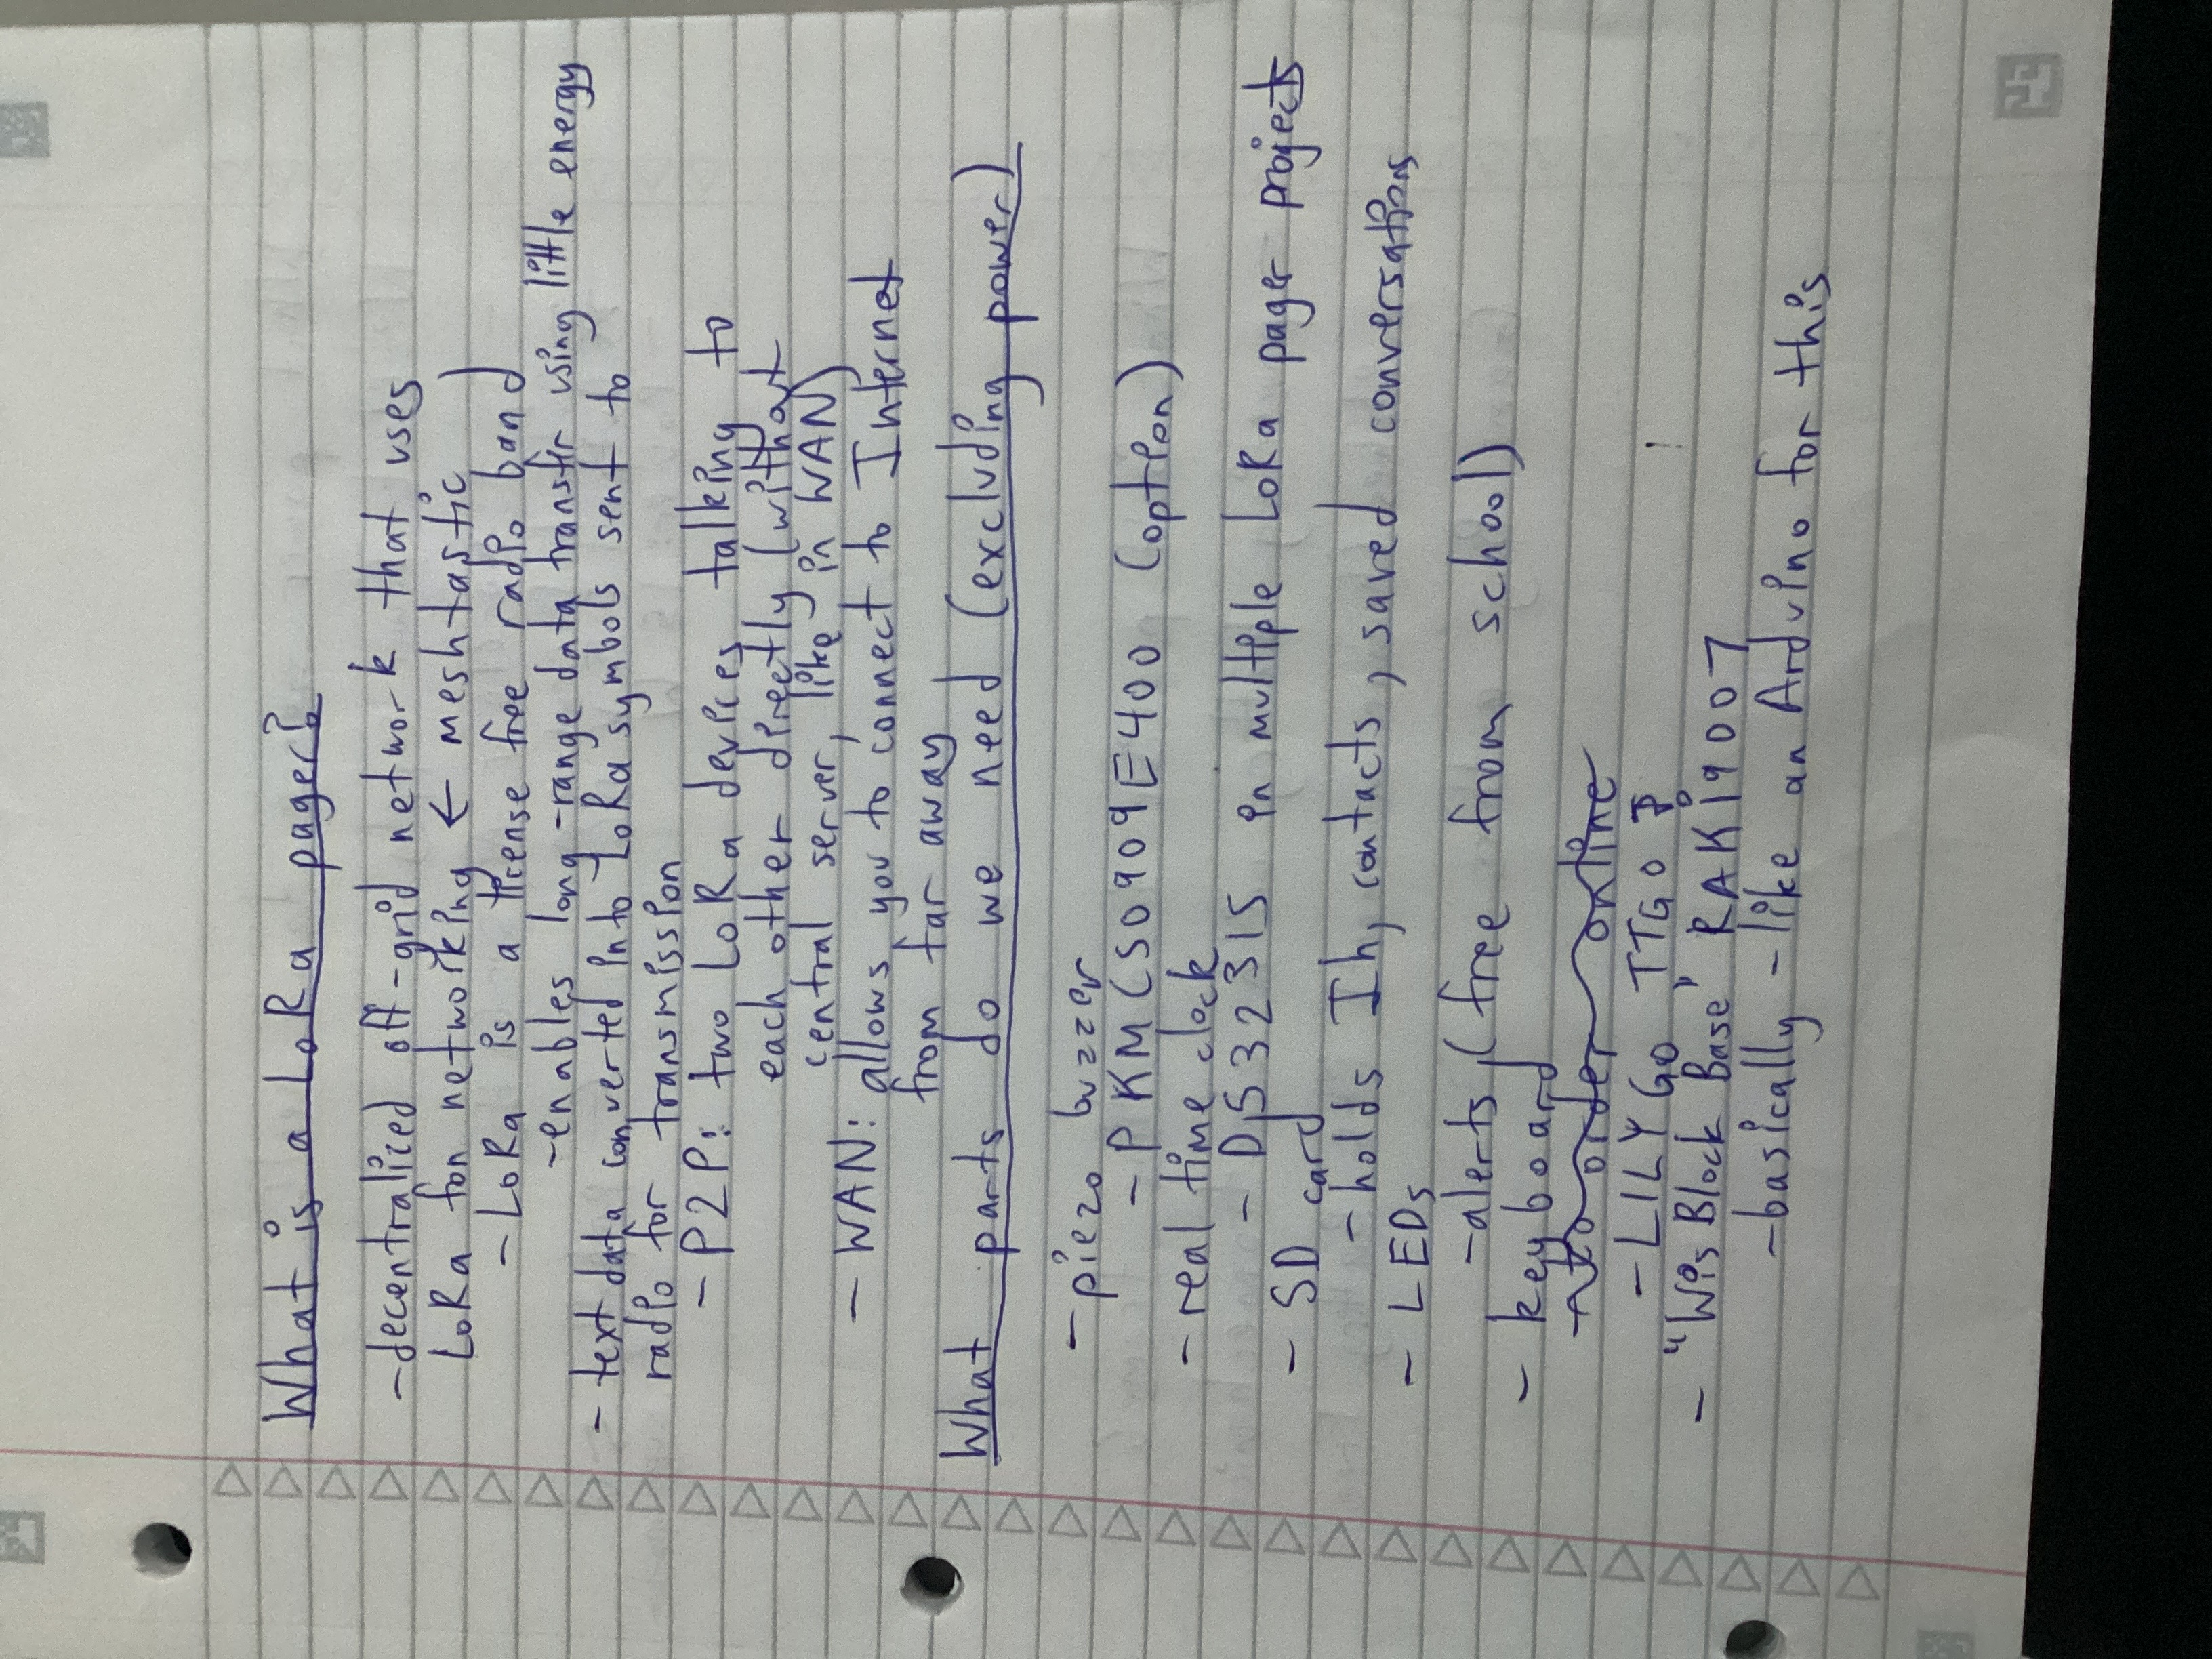 What is a LoRa pager?
- decentralized off-grid network that uses
LoRa for networking ← meshtastic
- LoRa is a license free radio band
- enables long-range data transfer using little energy
- text data converted into LoRa symbols sent to
radio for transmission
- P2P: two LoRa devices talking to
each other directly (without
central server, like in WAN)
- WAN: allows you to connect to Internet
from far away
What parts do we need (excluding power)
- piezo buzzer
- PKMCS0909E400 (option)
- real time clock
- DS3231S in multiple LoRa pager projects
- SD card
- holds contacts, saved conversations
- LEDs
- alerts (free from school)
- keyboard
- to order online
- LILYGO TTGO
- "WisBlock Base" RAK19007
- basically - like an Arduino for this